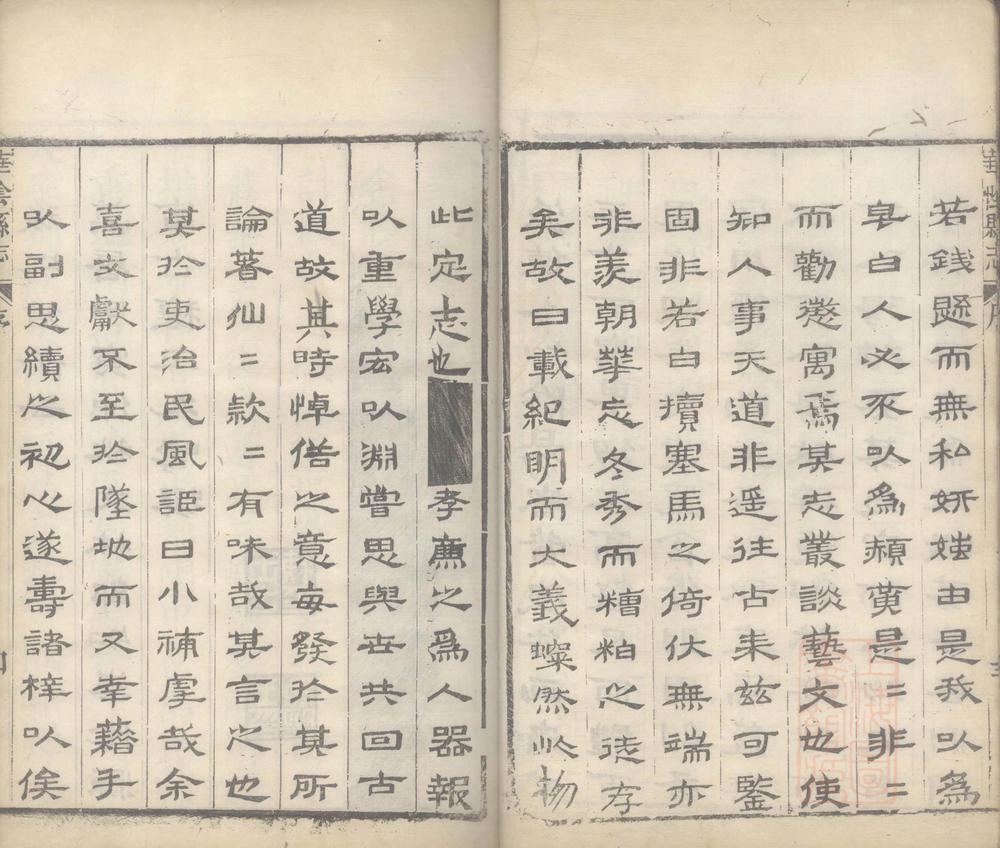 若錢懸而無私妍媸由是我以為
皂白人必不以為頳黄是二非二
而勸懲寓焉其志叢談藝文也使
知人事天道非遥往古来兹可鑒
固非若白犢塞馬之倚伏無端亦
非羡朝華忘冬秀而糟粕之徒存
矣故曰載紀明而大義粲然此物
此定志也 孝廉之爲人器報
以重學宏以淵嘗思與世共回古
道故其時悼俗之意每發於其所
論著仙二款二有味哉其言之也
其於吏治民風詎曰小補虖哉余
喜文獻不至於墜地而又幸藉手
以副思續之初心遂壽諸梓以俟
華陰縣志 序